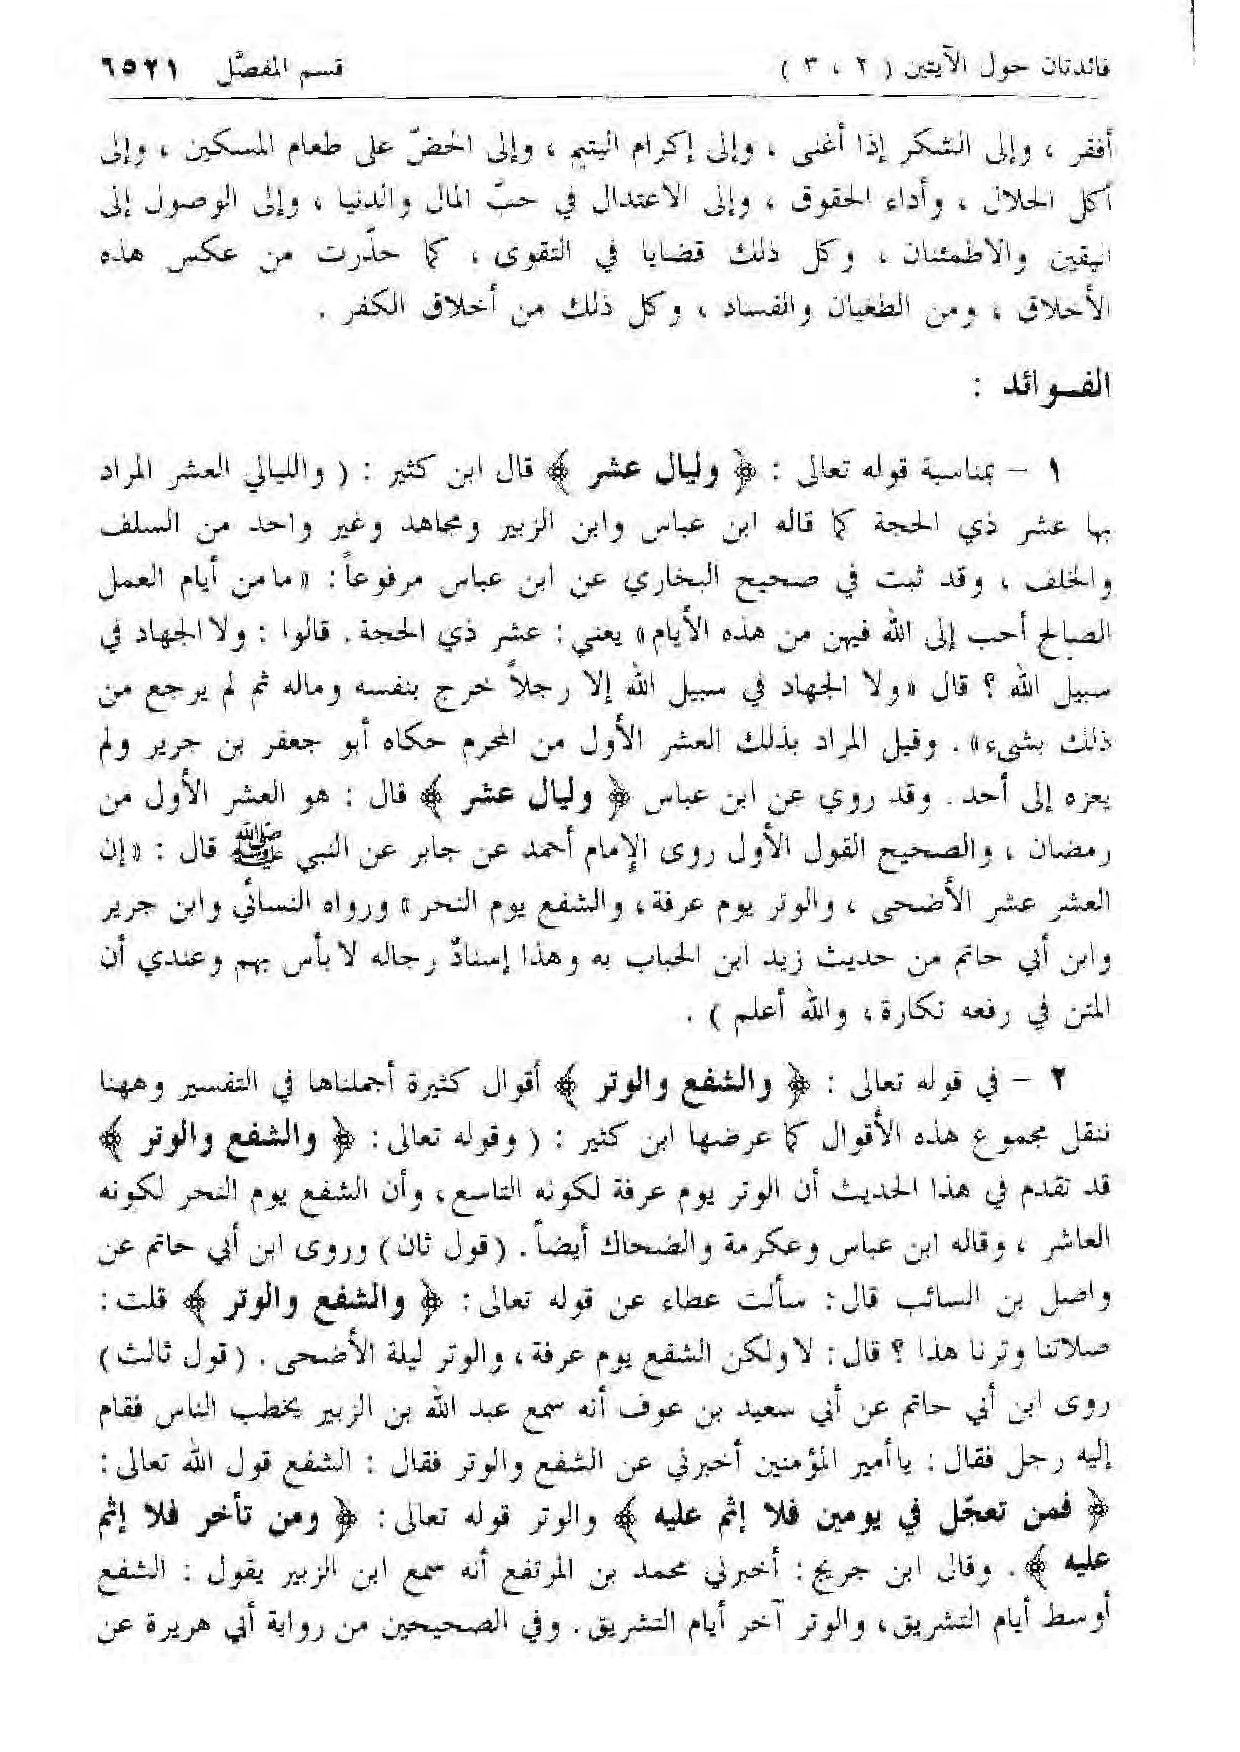 فائدتان حول الآيتين ( ٢ ، ٣ ) قسم المفصَّل ٦٥٢١
أفقر ، وإلى الشكر إذا أغنى ، وإلى إكرام اليتيم ، وإلى الحضّ على طعام المسكين ، وإلى
أكل الحلال ، وأداء الحقوق ، وإلى الاعتدال في حبّ المال والدنيا ، وإلى الوصول إلى
اليقين والاطمئنان ، وكل ذلك قضايا في التقوى ، كما حذّرت من عكس هذه
الأخلاق ، ومن الطغيان والفساد ، وكل ذلك من أخلاق الكفر .
الفــوائد :
١ - بمناسبة قوله تعالى : ﴿ وليال عشر ﴾ قال ابن كثير : ( والليالي العشر المراد
بها عشر ذي الحجة كما قاله ابن عباس وابن الزبير ومجاهد وغير واحد من السلف
والخلف ، وقد ثبت في صحيح البخاري عن ابن عباس مرفوعاً : « ما من أيام العمل
الصالح أحب إلى الله فيهن من هذه الأيام » يعني : عشر ذي الحجة . قالوا : ولا الجهاد في
سبيل الله ؟ قال « ولا الجهاد في سبيل الله إلا رجلاً خرج بنفسه وماله ثم لم يرجع من
ذلك بشيء » . وقيل المراد بذلك العشر الأول من المحرم حكاه أبو جعفر بن جرير ولم
يعزه إلى أحد . وقد روي عن ابن عباس ﴿ وليال عشر ﴾ قال : هو العشر الأول من
رمضان ، والصحيح القول الأول روى الإمام أحمد عن جابر عن النبي ﷺ قال : « إن
العشر عشر الأضحى ، والوتر يوم عرفة ، والشفع يوم النحر » ورواه النسائي وابن جرير
وابن أبي حاتم من حديث زيد ابن الحباب به وهذا إسنادٌ رجاله لا بأس بهم وعندي أن
المتن في رفعه نكارة ، والله أعلم ) .
٢ - في قوله تعالى : ﴿ والشفع والوتر ﴾ أقوال كثيرة أجملناها في التفسير وههنا
ننقل مجموع هذه الأقوال كما عرضها ابن كثير : ( وقوله تعالى : ﴿ والشفع والوتر ﴾
قد تقدم في هذا الحديث أن الوتر يوم عرفة لكونه التاسع ، وأن الشفع يوم النحر لكونه
العاشر ، وقاله ابن عباس وعكرمة والضحاك أيضاً . ( قول ثان ) وروى ابن أبي حاتم عن
واصل بن السائب قال : سألت عطاء عن قوله تعالى : ﴿ والشفع والوتر ﴾ قلت :
صلاتنا وترنا هذا ؟ قال : لا ولكن الشفع يوم عرفة ، والوتر ليلة الأضحى . ( قول ثالث )
روى ابن أبي حاتم عن أبي سعيد بن عوف أنه سمع عبد الله بن الزبير يخطب الناس فقام
إليه رجل فقال : يا أمير المؤمنين أخبرني عن الشفع والوتر فقال : الشفع قول الله تعالى :
﴿ فمن تعجّل في يومين فلا إثم عليه ﴾ والوتر قوله تعالى : ﴿ ومن تأخر فلا إثم
عليه ﴾ . وقال ابن جريج : أخبرني محمد بن المرتفع أنه سمع ابن الزبير يقول : الشفع
أوسط أيام التشريق ، والوتر آخر أيام التشريق . وفي الصحيحين من رواية أبي هريرة عن